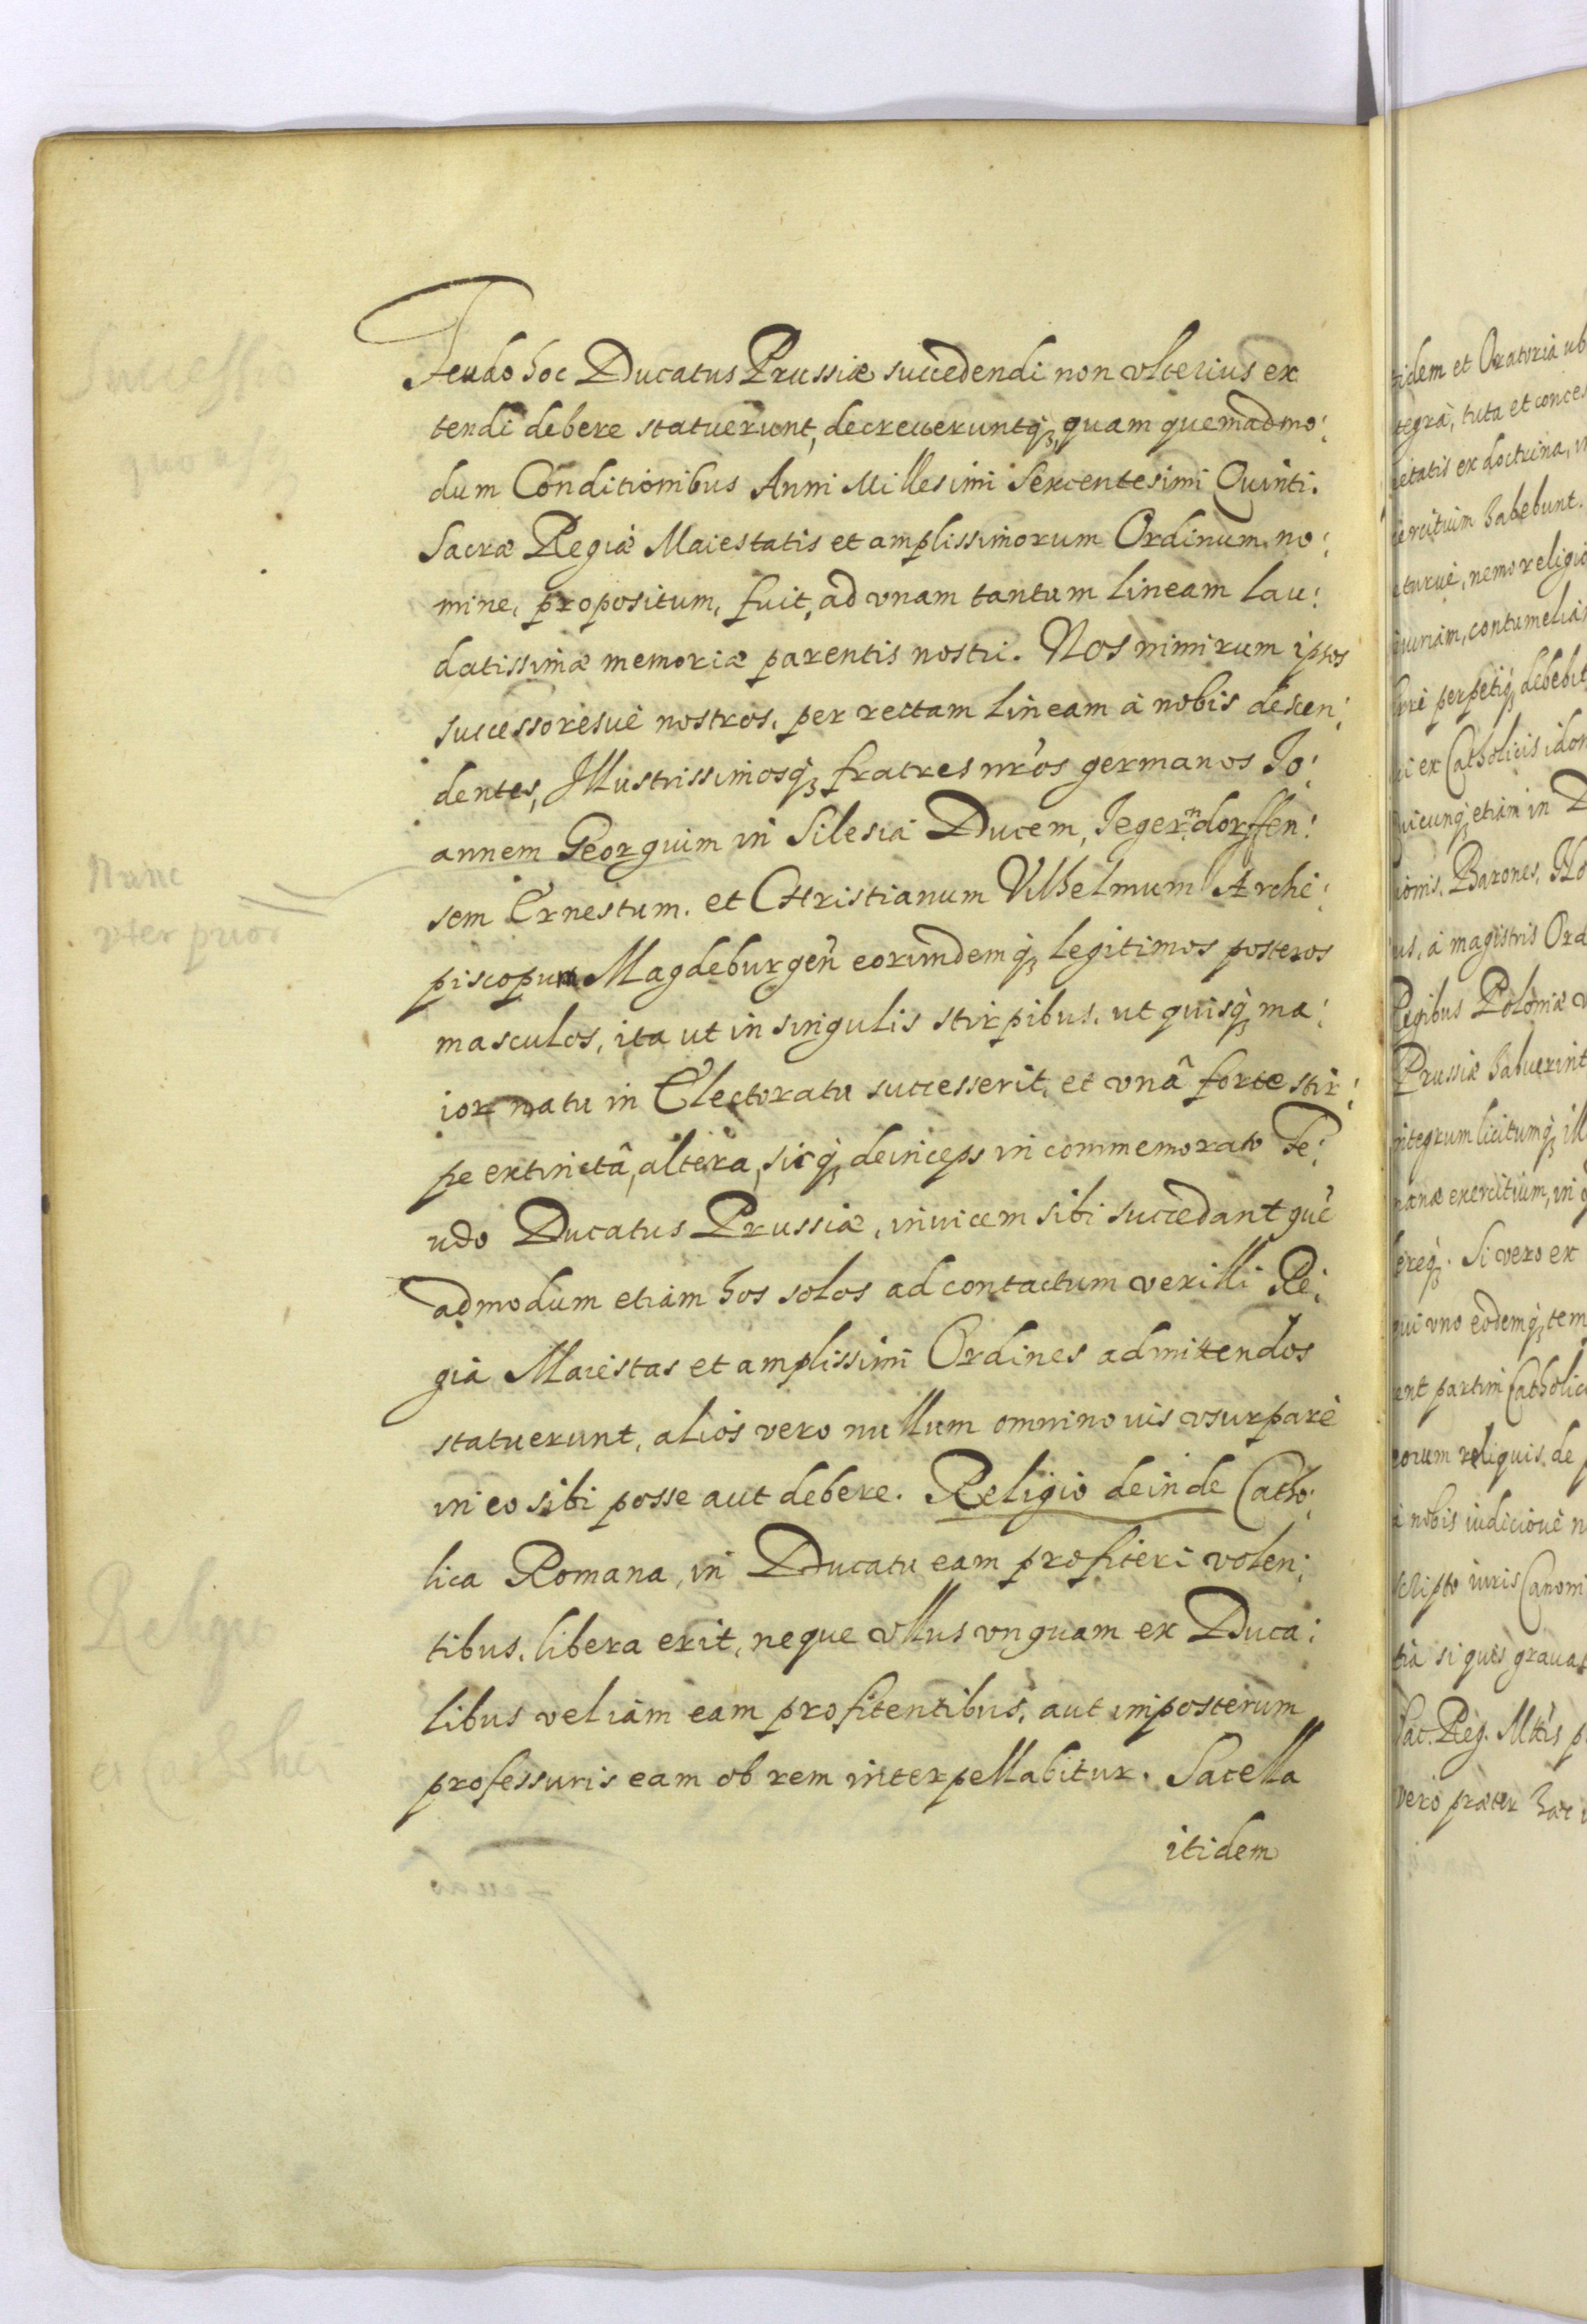 Feudo hoc Ducatus Prussiæ succedendi non vlterius ex
tendi debere statuerunt, decreueruntq₃, quam quemadmo:
dum Conditionibus Anni Millesimi Sexcentesimi Quinti.
Sacræ Regiæ Maiestatis et amplissimorum Ordinum no:
mine, propositum, fuit, ad vnam tantum lineam lau:
datissimæ memoriæ parentis nostri. Nos nimirum ipsos
successoresuè nostros, per rectam lineam à nobis descen:
dentes, Illustrissimosq₃ fratres nr̃os germanos Io:
annem Georgium in Silesia Ducem, Jegerndorffen:
sem Ernestum. et CHristianum Vilhelmum Archi:
piscopum Magdeburgeñ eorumdemq₃ legitimos posteros
masculos, ita ut in singulis stirpibus. ut quisq₃ ma:
ior natu in Electoratu successerit, et vnâ forte stir:
pe extinctâ, altera, sicq₃ deinceps in commemorato Fe:
udo Ducatus Prussiæ, inuicem sibi succedant quẽ
admodum etiam hos solos ad contactum vexilli Re:
gia Maiestas et amplissimi Ordines admittendos
statuerunt, alios vero nullum omnino uis vsurpare
in eo sibi posse aut debere. Religio deinde Catho:
lica Romana, in Ducatu eam profiteri volen:
tibus, libera erit, neque vllus vnquam ex Duca:
libus vel iam eam profitentibus, aut imposterum
professuris eam ob rem interpellabitur. Sacella
itidem
Successio
Nunc
vter prior
Religio
tidem et Oratoria ub
tegra, tuta et conces
ietatis ex doctrina, in
ercitium habebunt.
eturuè, nemo religio
iuriam, contumeliam
perpetiq₃ debebit
ex Catholicis idon
uicunq₃ etiam in D
ionis. Barones, No
us, à magistris Ord
Regibus Poloniæ v
Prussiæ habuerint
integrum licitumq₃ ill
manæ exercitium, in q
ereq₃. Si vero ex
qui vno eodemq₃ tem
ent partim Catholici
eorum reliquis. de p
à nobis iudicioue n
scripto iuris Canoni
tia si quis grauat
Sac. Reg. Mttis p
vero præter hæc